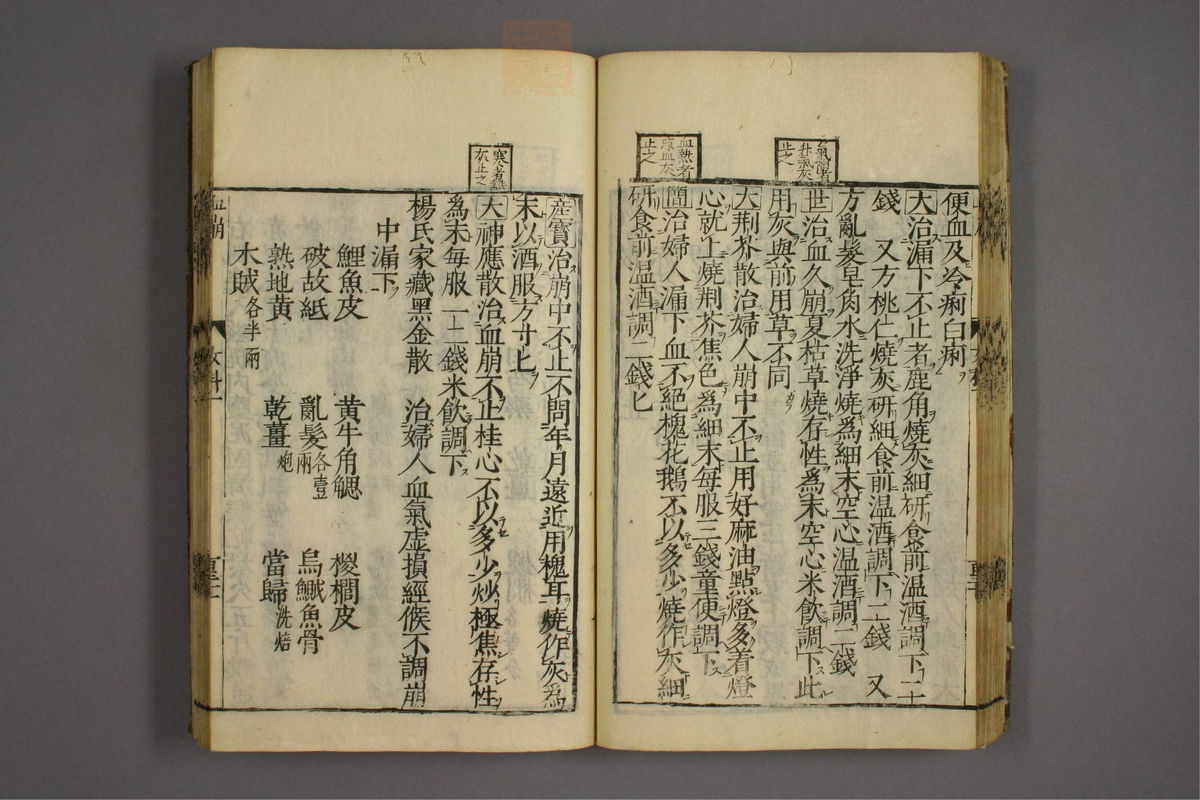 氣陷者
升氣灰
止之
血熱者
凉血灰
止之
便血及冷痢白痢
大治漏下不止者鹿角燒灰細研食前温酒調下二
錢 又方桃仁燒灰研細食前温酒調下二錢 又
方亂髮皂角水洗淨燒為細末空心温酒調二錢
世治血久崩夏枯草燒存性為末空心米飲調下此
用灰與前用草不同
大荆芥散治婦人崩中不止用好麻油點燈多着燈
心就上燒荆芥焦色為細末每服三錢童便調下
簡治婦人漏下血不絕槐花鵝不以多少燒作灰細
研食前温酒調二錢匕
寒者熱
灰止之
産寶治崩中不止不問年月遠近用槐耳燒作灰為
末以酒服方寸匕
大神應散治血崩不止桂心不以多少炒極焦存性
為末每服一二錢米飲調下
楊氏家藏黑金散 治婦人血氣虛損經候不調崩
中漏下
鯉魚皮 黃牛角䚡 椶櫚皮
破故紙 亂髮各壹兩 烏鰂魚骨
熟地黄 乾薑炮 當歸洗焙
木賊各半兩
血崩
女科一